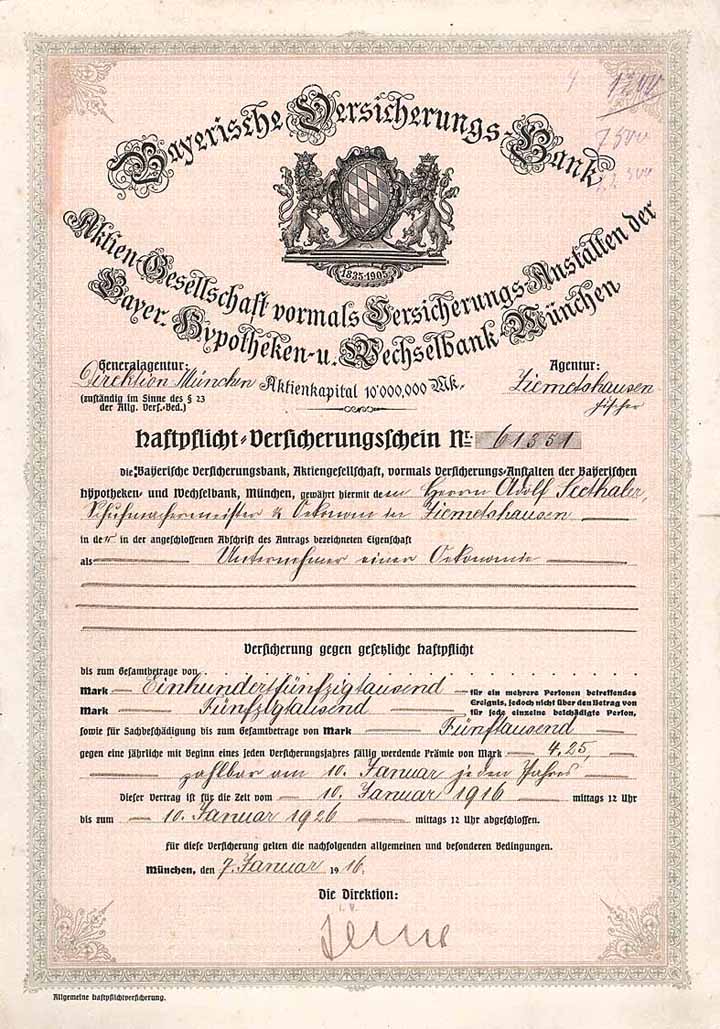 1200
7500
Bayerische Versicherungs-Bank
1835-1905
Aktien-Gesellschaft vormals Versicherungs-Anstalten der
Bayer. Hypotheken- u. Wechselbank München
Generalagentur:
Direktion München
(zuständig im Sinne des § 23
der Allg. Vers.-Bed.)
Aktienkapital 10'000,000 Mk.
Agentur:
Ziemetshausen
Fischer
Haftpflicht-Versicherungsschein Nr. 61351
Die Bayerische Versicherungsbank, Aktiengesellschaft, vormals Versicherungs-Anstalten der Bayerischen
Hypotheken- und Wechselbank, München, gewährt hiermit dem Herrn Adolf Seethaler,
Schuhmachermeister & Oekonom in Ziemetshausen
in der in der angeschlossenen Abschrift des Antrags bezeichneten Eigenschaft
als Unternehmer einer Oekonomie
Versicherung gegen gesetzliche Haftpflicht
bis zum Gesamtbetrage von
Mark Einhundertfünfzigtausend für ein mehrere Personen betreffendes
Ereignis, jedoch nicht über den Betrag von
Mark Fünfzigtausend für jede einzelne beschädigte Person,
sowie für Sachbeschädigung bis zum Gesamtbetrage von Mark Fünftausend
gegen eine jährliche mit Beginn eines jeden Versicherungsjahres fällig werdende Prämie von Mark 4.25,
zahlbar am 10. Januar jeden Jahres
Dieser Vertrag ist für die Zeit vom 10. Januar 1916 mittags 12 Uhr
bis zum 10. Januar 1926 mittags 12 Uhr abgeschlossen.
Für diese Versicherung gelten die nachfolgenden allgemeinen und besonderen Bedingungen.
München, den 7. Januar 1916.
Die Direktion:
i. V.
Allgemeine Haftpflichtversicherung.